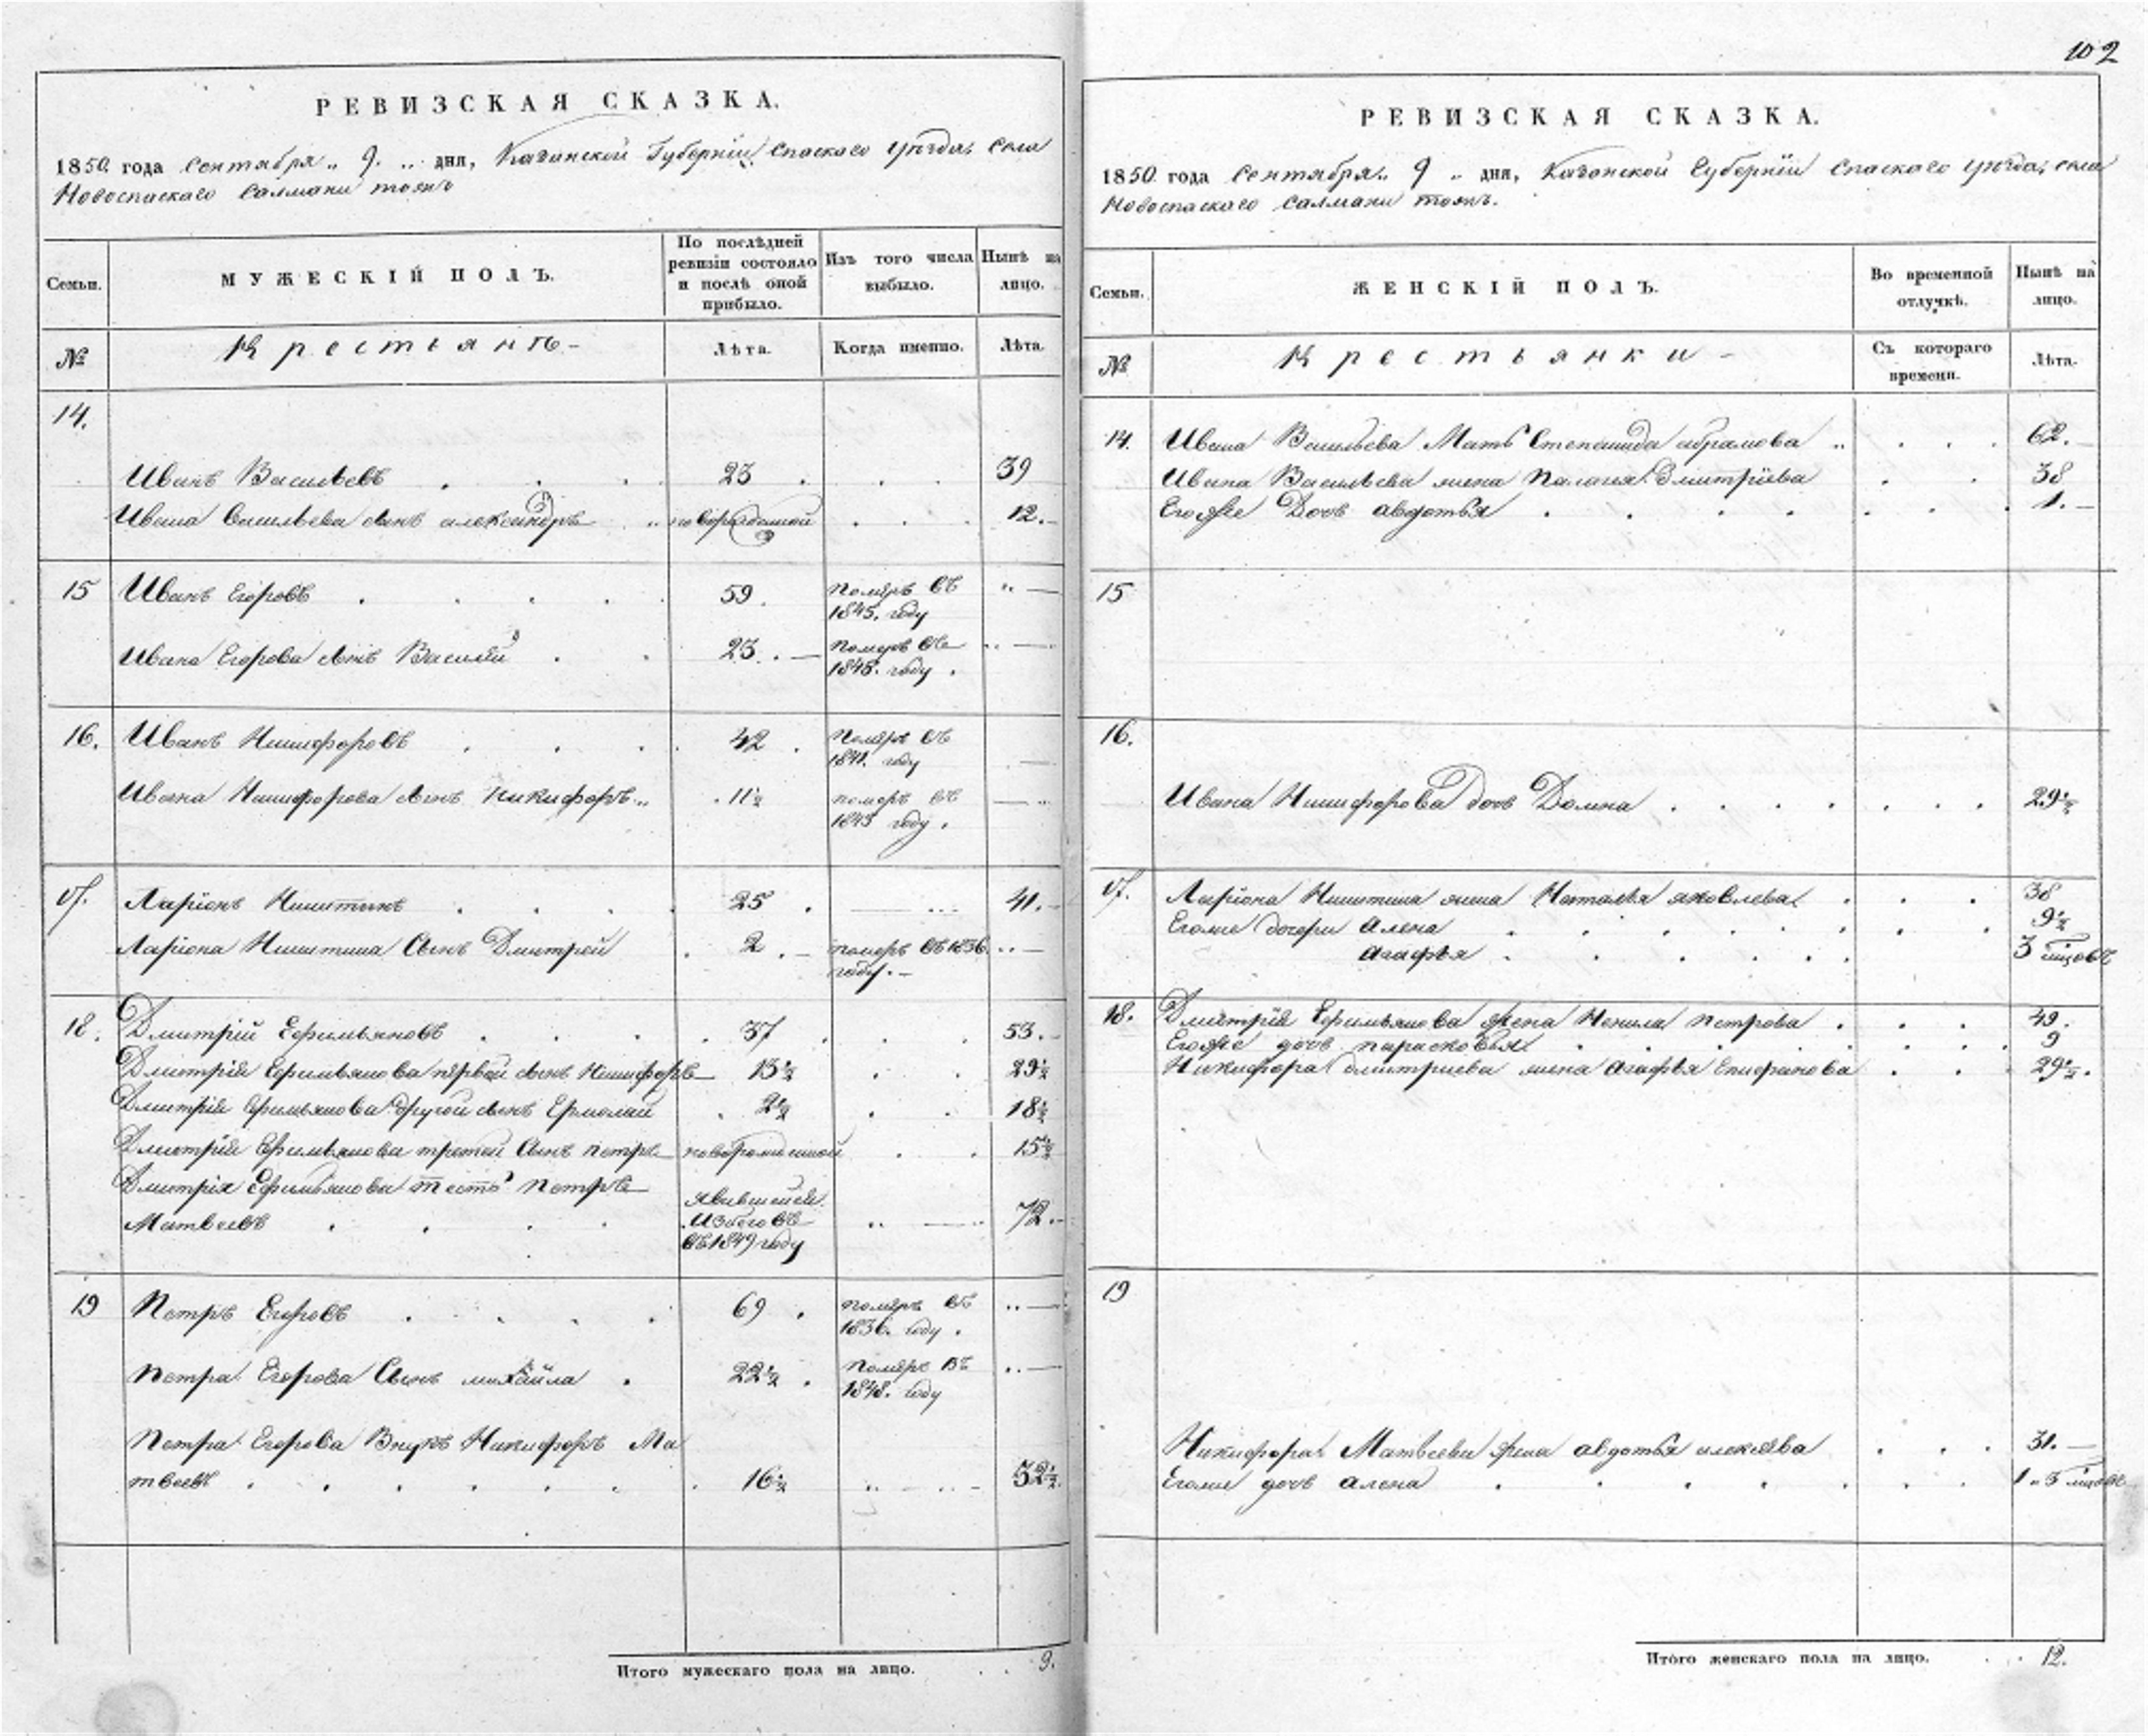 102
РЕВИЗСКАЯ СКАЗКА.
1850 года Сентября „ 9. „ дня, Казанской Губерніи Спаскаго уѣзда, села
Новоспаскаго Салмани тожъ
Семьи.
МУЖЕСКІЙ ПОЛЪ.
По послѣдней ревизіи состояло и послѣ оной прибыло.
Изъ того числа выбыло.
Нынѣ на лицо.
№
Крестьянъ
Лѣта.
Когда именно.
Лѣта.
14.
Иванъ Васильевъ 23 39
Ивана Васильева сынъ александръ новорожденной 12.
15 Иванъ Егоровъ 59. помѣръ въ
1845. году
Ивана Егорова сынъ Василій 23. помѣръ въ
1848. году
16. Иванъ Никифоровъ 42 помѣръ въ
1841. году
Ивана Никифорова сынъ Никифоръ 11½ помѣръ въ
1843 году.
17. Ларіонъ Никитинъ 25 41.
Ларіона Никитина Сынъ Дмитрей 2 помѣръ въ 1836
году.
18. Дмитрій Ефимьяновъ 37 53.
Дмитрія Ефимьянова первой сынъ Никифоръ 13½ 29½
Дмитрія Ефимьянова другой сынъ Ермолай 2½ 18½
Дмитрія Ефимьянова третей Сынъ петръ новорожденной 15½
Дмитрія Ефимьянова тесть петръ явившейся
Матвеевъ изъбеговъ 72.
въ 1849 году
19 Петръ Егоровъ 69 помѣръ въ
1836. году.
Петра Егорова Сынъ михайла 22½ помѣръ въ
1848. году
Петра Егорова Внукъ Никифоръ Ма
твеевъ 16½ 32½
Итого мужескаго пола на лицо. 9.
РЕВИЗСКАЯ СКАЗКА.
1850 года Сентября „ 9 „ дня, Казанской Губерніи Спаскаго уѣзда, села
Новоспаскаго Салмани тожъ.
Семьи.
ЖЕНСКІЙ ПОЛЪ.
Во временной отлучкѣ.
Нынѣ на лицо.
№
Крестьянки
Съ котораго времени.
Лѣта.
14. Ивана Васильева Мать Степанида абрамова 62.
Ивана Васильева жена Палагея Дмитріева 38
Егоже Дочь авдотья 1.
15
16.
Ивана Никифорова дочь Домна 29½
17. Ларіона Никитина жена Наталья яковлева 38
Егоже дочери алена 9½
агафья 3 мцовъ
18. Дмитрія Ефимьянова жена Ненила петрова 49.
Егоже дочь парасковья 9
Никифора дмитриева жена агафья Епифанова 29½.
19
Никифора Матвеева жена авдотья алексѣева 31.
Егоже дочь алена 1 „ 3 мцовъ
Итого женскаго пола на лицо. 12.